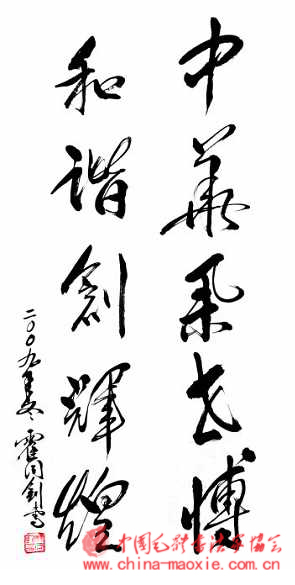 中華世博
和諧創輝煌
二〇〇九年冬 霍同書
中国毛书法家协会
www.china-maoxie.com